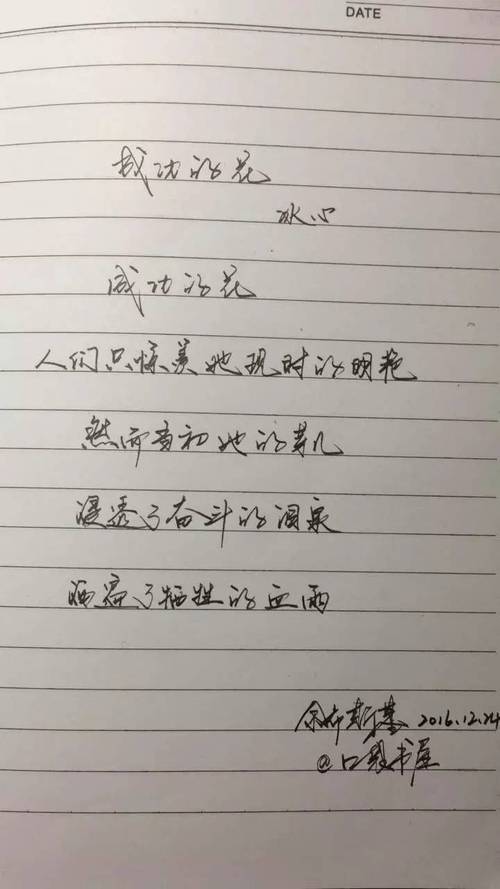 DATE
成功的花
冰心
成功的花
人们只惊美她现时的明艳
然而当初她的芽儿
浸透了奋斗的泪泉
洒遍了牺牲的血雨
余布斯基 2016.12.24
@口袋书屋